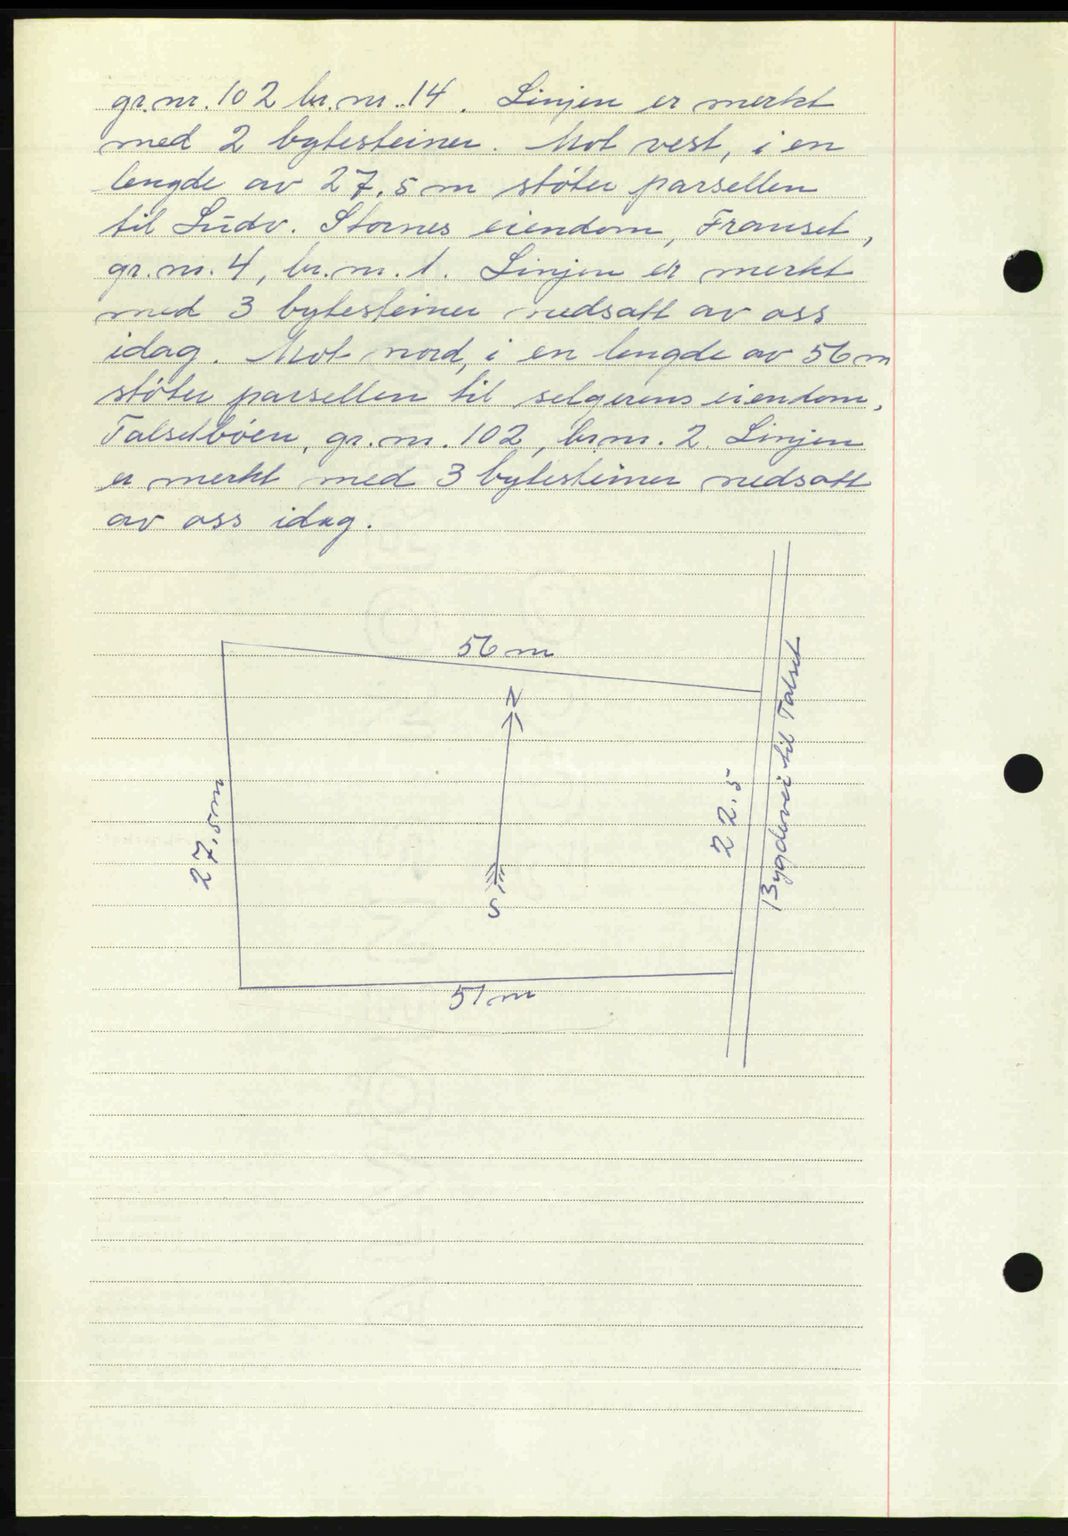 gr. nr. 102 br. nr. 14. Linjen er merkt
med 2 bytesteiner. Mot vest, i en
lengde av 27.5 m støter parsellen
til Ludv. Stornes eiendom, Franset,
gr. nr. 4, br. nr. 1. Linjen er merkt
med 3 bytesteiner nedsatt av oss
idag. Mot nord, i en lengde av 56 m
støter parsellen til selgerens eiendom,
Talsetbøen, gr. nr. 102, br. nr. 2. Linjen
er merkt med 3 bytesteiner nedsatt
av oss idag.
56 m
N
27.5 m
22.5
Bygdevei til Talset
S
51 m